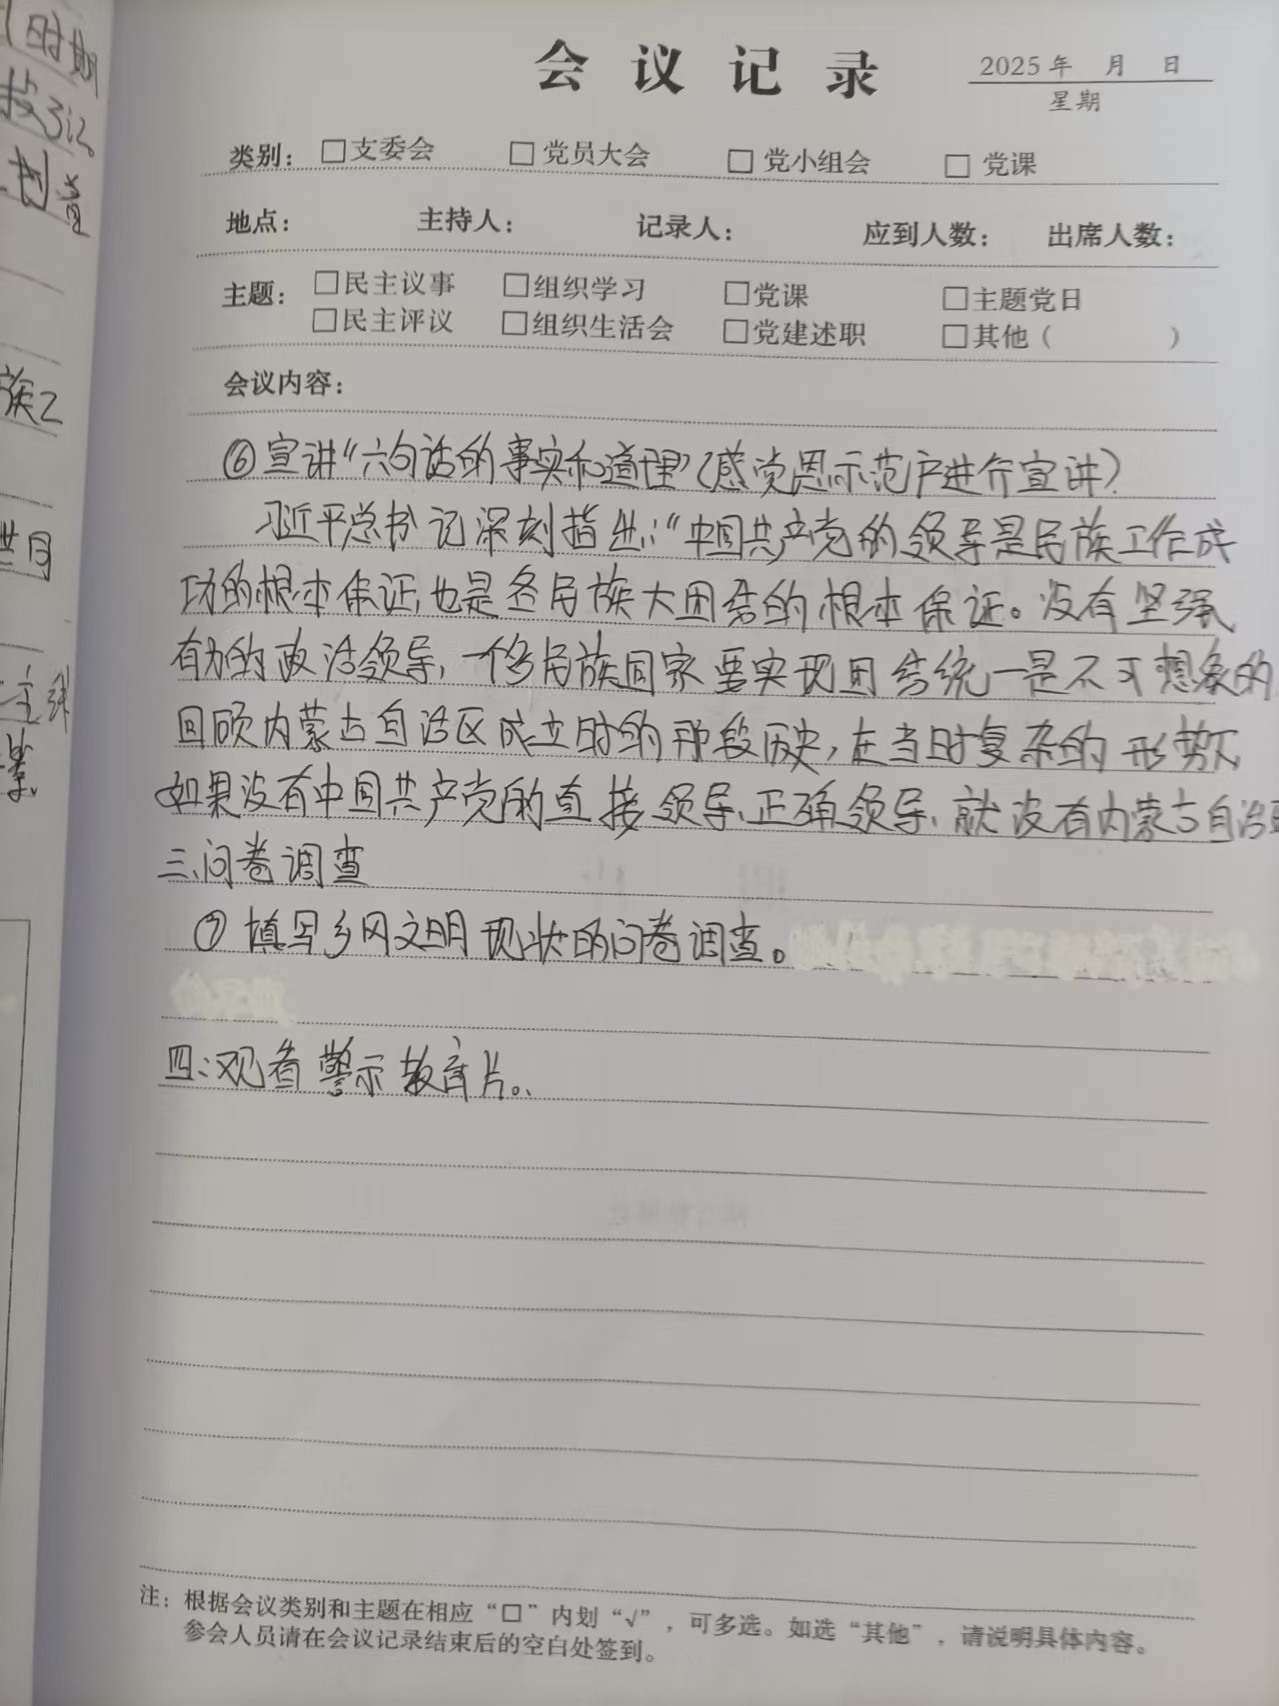 会议记录
2025年 月 日
星期
类别: □支委会 □党员大会 □党小组会 □党课
地点: 主持人: 记录人: 应到人数: 出席人数:
主题: □民主议事 □组织学习 □党课 □主题党日
□民主评议 □组织生活会 □党建述职 □其他( )
会议内容:
⑥宣讲“六句话的事实和道理”(感党恩示范户进行宣讲)
习近平总书记深刻指出:“中国共产党的领导是民族工作成
功的根本保证,也是各民族大团结的根本保证。没有坚强
有力的政治领导,一个多民族国家要实现团结统一是不可想象的
回顾内蒙古自治区成立时的那段历史,在当时复杂的形势下
如果没有中国共产党的直接领导、正确领导,就没有内蒙古自治区
三、问卷调查
⑦填写乡风文明现状的问卷调查。
四:观看警示教育片。
注:根据会议类别和主题在相应“□”内划“√”,可多选。如选“其他”,请说明具体内容。
参会人员请在会议记录结束后的空白处签到。
时期
族
世月
主线